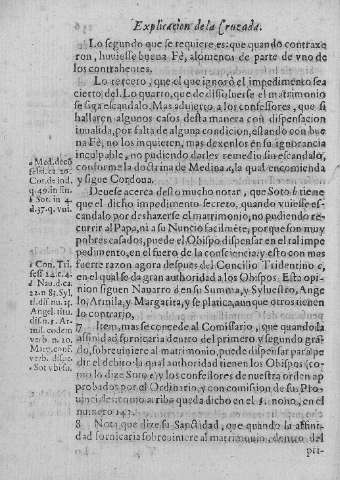 Explicacion de la Cruzada.
Lo segundo que se requiere es: que quando contraxe
ron, huuiesse buena Fè, alomenos de parte de vno de
los contrahentes.
Lo tercero, que el que ignorò el impedimento sea
cierto del. Lo quarto, que de dissoluerse el matrimonio
se siga escandalo. Mas aduierto a los confessores, que si
hallaren algunos casos desta manera con dispensacion
inualida, por falta de alguna condicion, estando con bue
na Fè, no los inquieren, mas dexenlos en su ignorancia
inculpable, no pudiendo darles remedio sin escandalo,
conforme la doctrina de Medina a, la qual encomienda
y sigue Cordoua.
Deuese acerca desto mucho notar, que Soto b tiene
que el dicho impedimento secreto, quando vuiesse es-
candalo por deshazerse el matrimonio, no pudiendo re-
currir al Papa, ni a su Nuncio facilmẽte, porque son muy
pobres casados, puede el Obispo dispensar en el tal impe
pedimento, en el fuero de la conciencia, y esto con mas
fuerte razon agora despues del Concilio Tridentino c,
en el qual se da gran authoridad a los Obispos. Esta opi-
nion siguen Nauarro d en su Summa, y Syluestro, Ange
lo, Armila, y Margarita, y se platica, aunque otros tienen
lo contrario.
7 Item, mas se concede al Comissario, que quando la
affinidad fornicaria dentro del primero y segundo gra-
do, sobreuiniere al matrimonio, puede dispensar para pe
dir el debito la qual authoridad tienen los Obispos (co-
mo lo dize Soto e) y los confessores de nuestra orden ap
probados por el Ordinario, y con comision de sus Pro-
uinciales como arriba queda dicho en el §. nono, en el
numero 143.
8 Nota que dize su Sanctidad, que quando la affini-
dad fornicaria sobreuiniere al matrimonio, dentro del
pri-
a Med. de cõ
fess. ca. 20.
Cor. de ind.
q. 49. in fin.
b Sot. in 4.
d. 37. q. vni.
c Con. Tri.
sess. 24. c. 4.
d Nau. d. ca.
22. n. 85. Syl.
Angel. titu.
Ar-
mil. eodem
verb. n. 10.
Marg. conf.
e Sot vbi su.